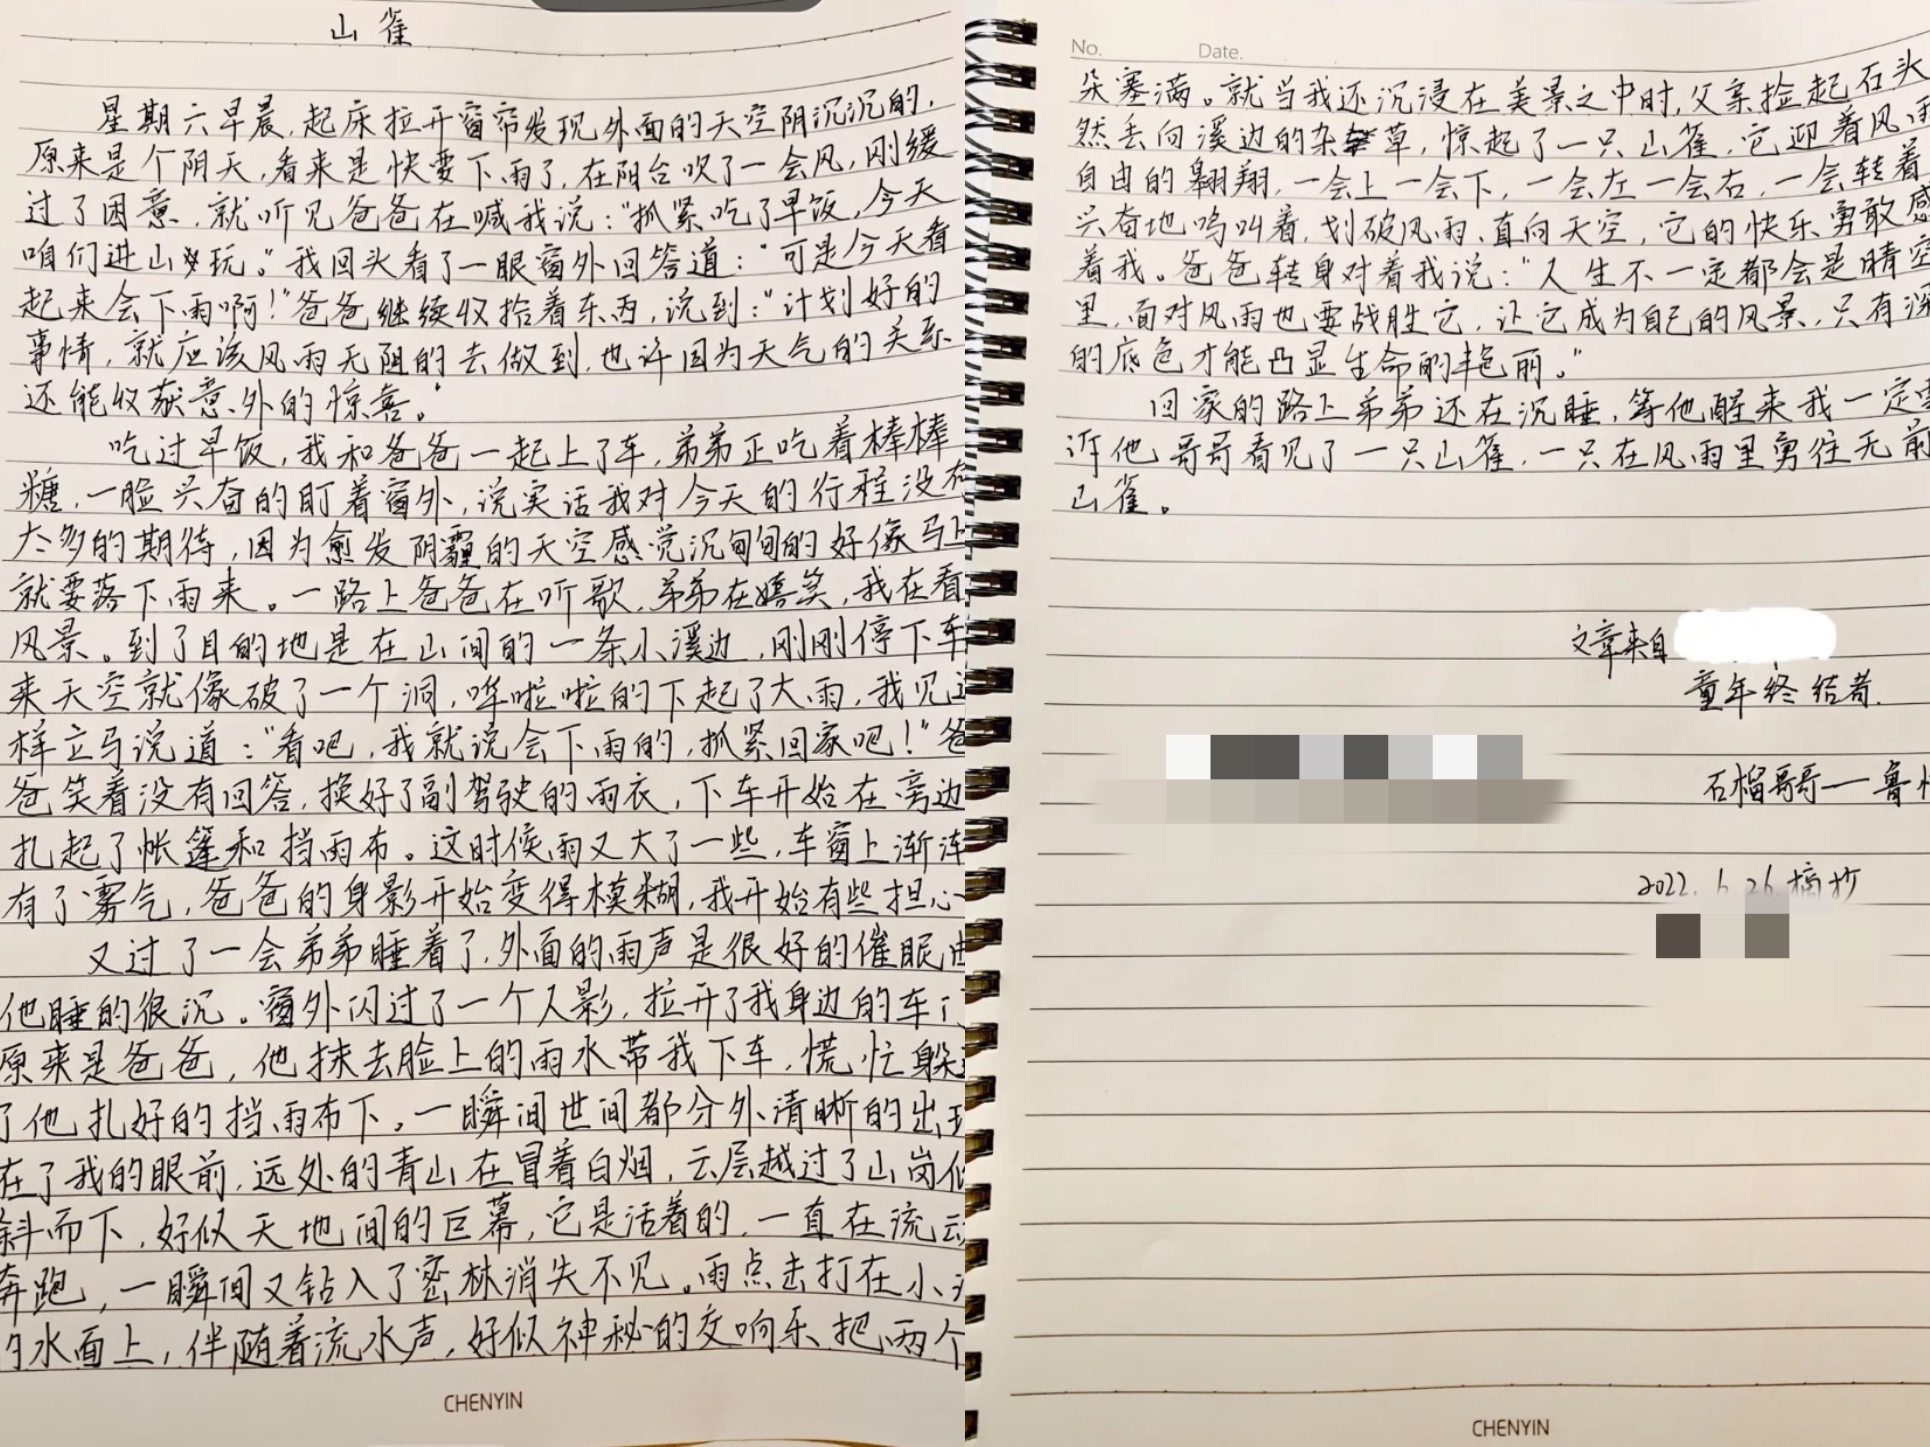 山雀
星期六早晨,起床拉开窗帘发现外面的天空阴沉沉的,
原来是个阴天,看来是快要下雨了,在阳台吹了一会风,刚缓
过了困意,就听见爸爸在喊我说:“抓紧吃了早饭,今天
咱们进山玩。”我回头看了一眼窗外回答道:“可是今天看
起来会下雨啊!”爸爸继续收拾着东西,说到:“计划好的
事情,就应该风雨无阻的去做到,也许因为天气的关系
还能收获意外的惊喜。”
吃过早饭,我和爸爸一起上了车,弟弟正吃着棒棒
糖,一脸兴奋的盯着窗外,说实话我对今天的行程没有
太多的期待,因为愈发阴霾的天空感觉沉甸甸的好像马上
就要落下雨来。一路上爸爸在听歌,弟弟在嬉笑,我在看
风景。到了目的地是在山间的一条小溪边,刚刚停下车
来天空就像破了一个洞,哗啦啦的下起了大雨,我见这
样立马说道:“看吧,我就说会下雨的,抓紧回家吧!”爸
爸笑着没有回答,换好了副驾驶的雨衣,下车开始在旁边
扎起了帐篷和挡雨布。这时候雨又大了一些,车窗上渐渐
有了雾气,爸爸的身影开始变得模糊,我开始有些担心
又过了一会弟弟睡着了,外面的雨声是很好的催眠曲
他睡的很沉。窗外闪过了一个人影,拉开了我身边的车门
原来是爸爸,他抹去脸上的雨水带我下车,慌忙躲
了他扎好的挡雨布下。一瞬间世间都分外清晰的出现
在了我的眼前,远处的青山在冒着白烟,云层越过了山岗
斜而下,好似天地间的巨幕,它是活着的,一直在流动
奔跑,一瞬间又钻入了密林消失不见。雨点击打在小
的水面上,伴随着流水声,好似神秘的交响乐把两个
CHENYIN
No. Date.
朵塞满。就当我还沉浸在美景之中时,父亲捡起石头
然丢向溪边的杂草,惊起了一只山雀,它迎着风雨
自由的翱翔,一会上一会下,一会左一会右,一会转着
兴奋地鸣叫着,划破风雨,直向天空,它的快乐勇敢感
着我。爸爸转身对着我说:“人生不一定都会是晴空
里,面对风雨也要战胜它,让它成为自己的风景,只有深
的底色才能凸显生命的艳丽。”
回家的路上弟弟还在沉睡,等他醒来我一定要
诉他哥哥看见了一只山雀,一只在风雨里勇往无前
山雀。
文章来自
童年终结者.
石榴哥哥一鲁
2022.6.26摘抄
CHENYIN